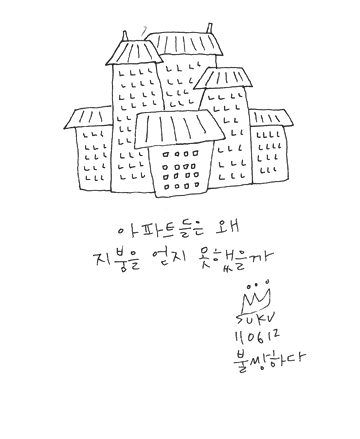 아파트들은 왜
지붕을 얻지 못했을까
SUKU
110612
불쌍하다